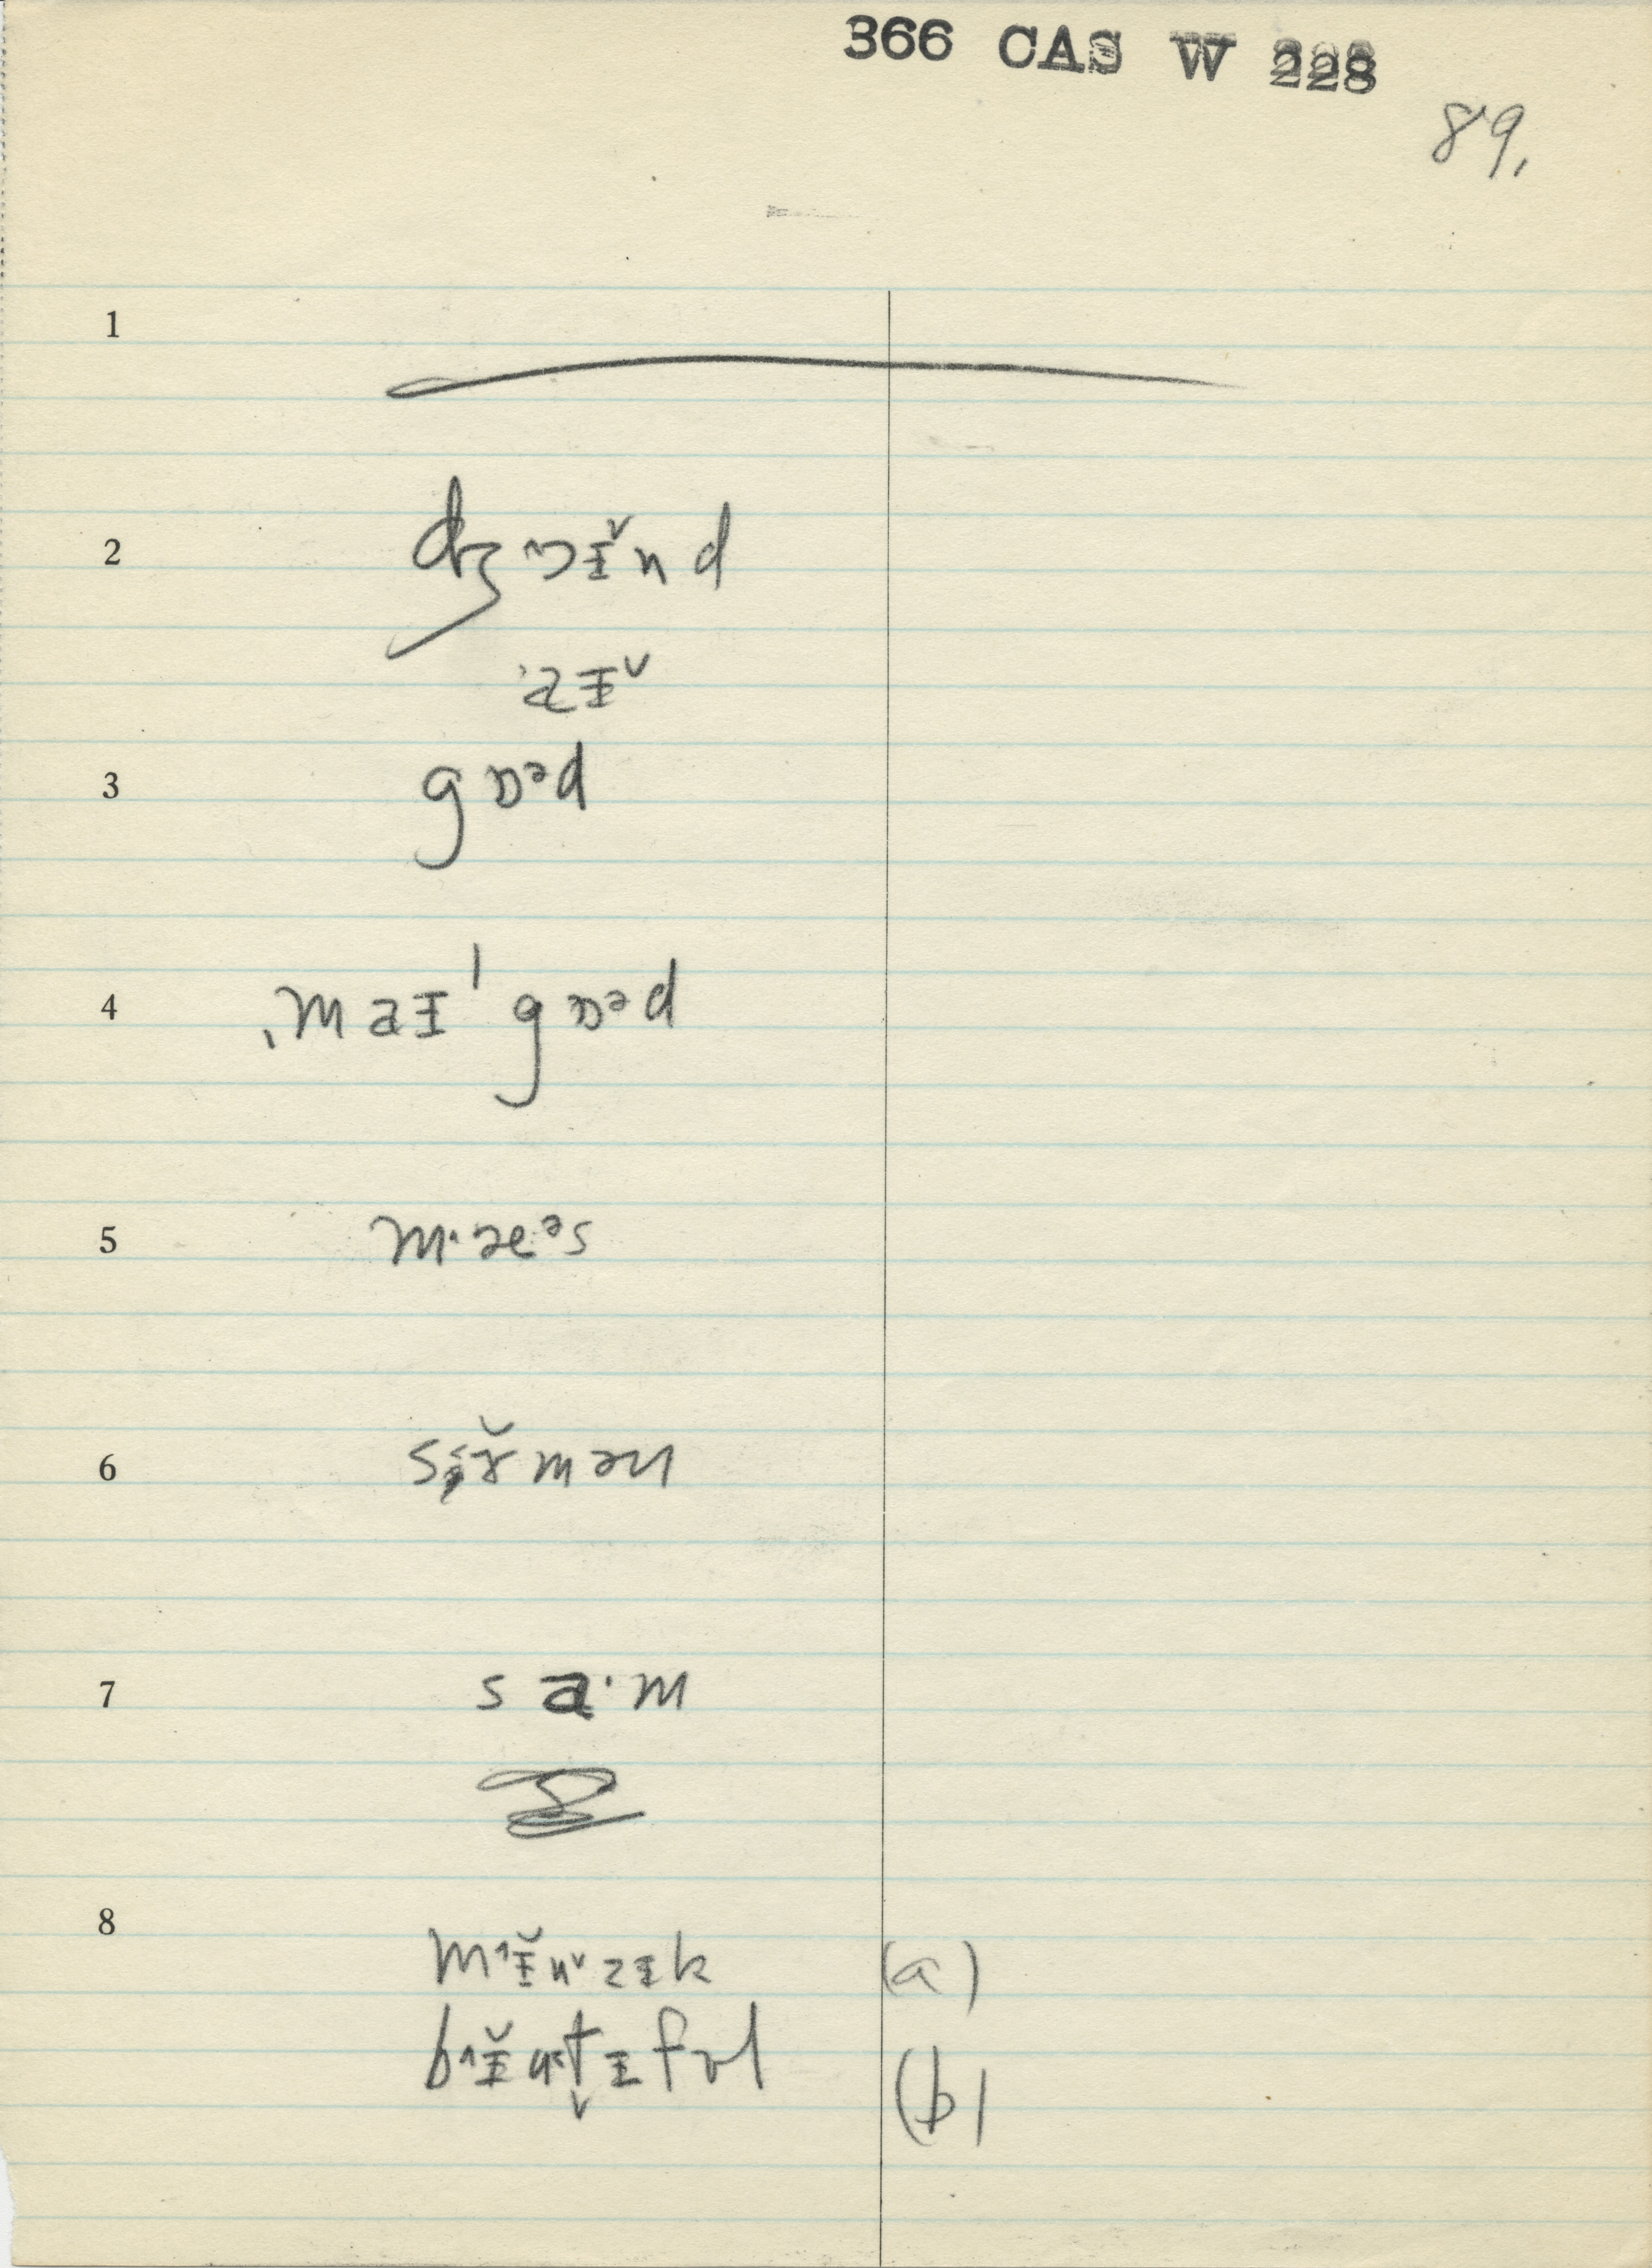 366 CAS W 228
89.
1
2 dʒɒɪ̌nd
aɪˇ
3 gɒᵊd
4 ˌmaɪˈgɒᵊd
5 m·æᵊs
6 sɤ̌mən
7 sa·m
8 m˄ɪ̆u˅zɪk (a)
b˄ɪ̆ut̬ɪfʊl (b)